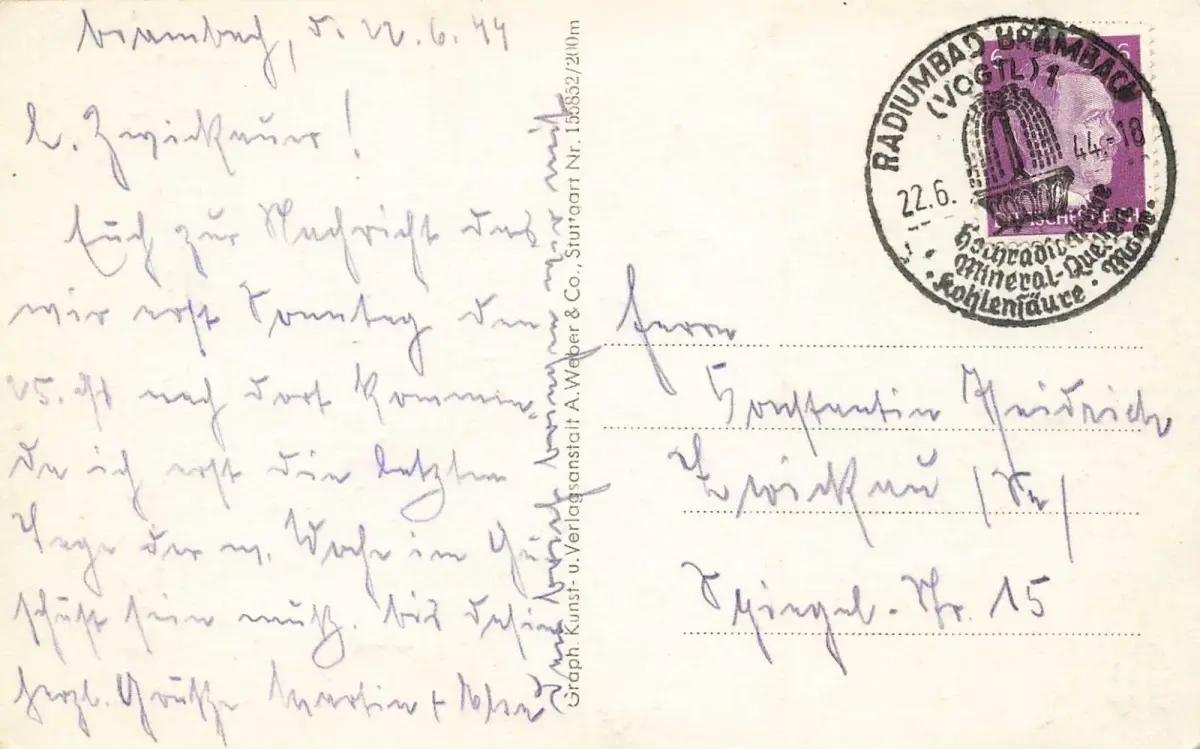 Brambach, d. 22.6.44
L. Zwickauer!
Euch zur Nachricht das
wir erst Sonntag den
25. ds nach dort kommen,
da ich erst die letzten
Tage der n. Woche im Ge
schäft sein muß. bis dahin
herzl. Grüße Martin +
Den bring wir mit
Graph. Kunst- u. Verlagsanstalt A. Weber & Co., Stuttgart Nr. 155852/200m
RADIUMBAD BRAMBACH
(VOGTL) 1
22.6. 44.-18
Hochradioaktive
Mineral-Quellen
Kohlensäure · Moor
Herrn
Konstantin
Zwickau /Sa/
Spiegel-Str. 15